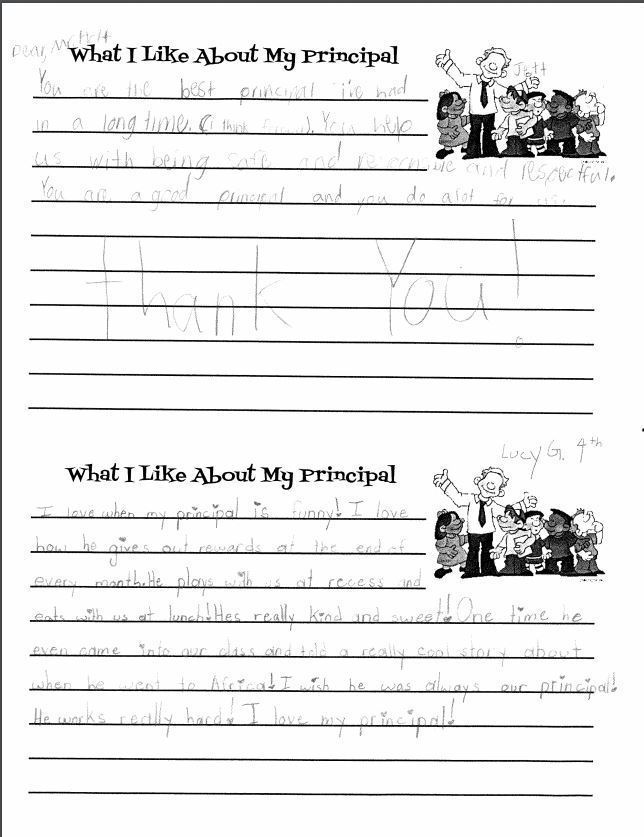 Dear, Mr
What I Like About My Principal
Jett
You are the best principal i've had
in a long time. (I think ). You help
us with being safe and and respectful.
You are a good principal and you do alot for
Thank You!
Lucy G. 4th
What I Like About My Principal
I love when my principal is funny! I love
how he gives out rewards at the end of
every month. He plays with us at recess and
eats with us at lunch! Hes really kind and sweet! One time he
even came into our class and told a really cool story about
when he went to Africa! I wish he was always our principal!
He works really hard! I love my principal!